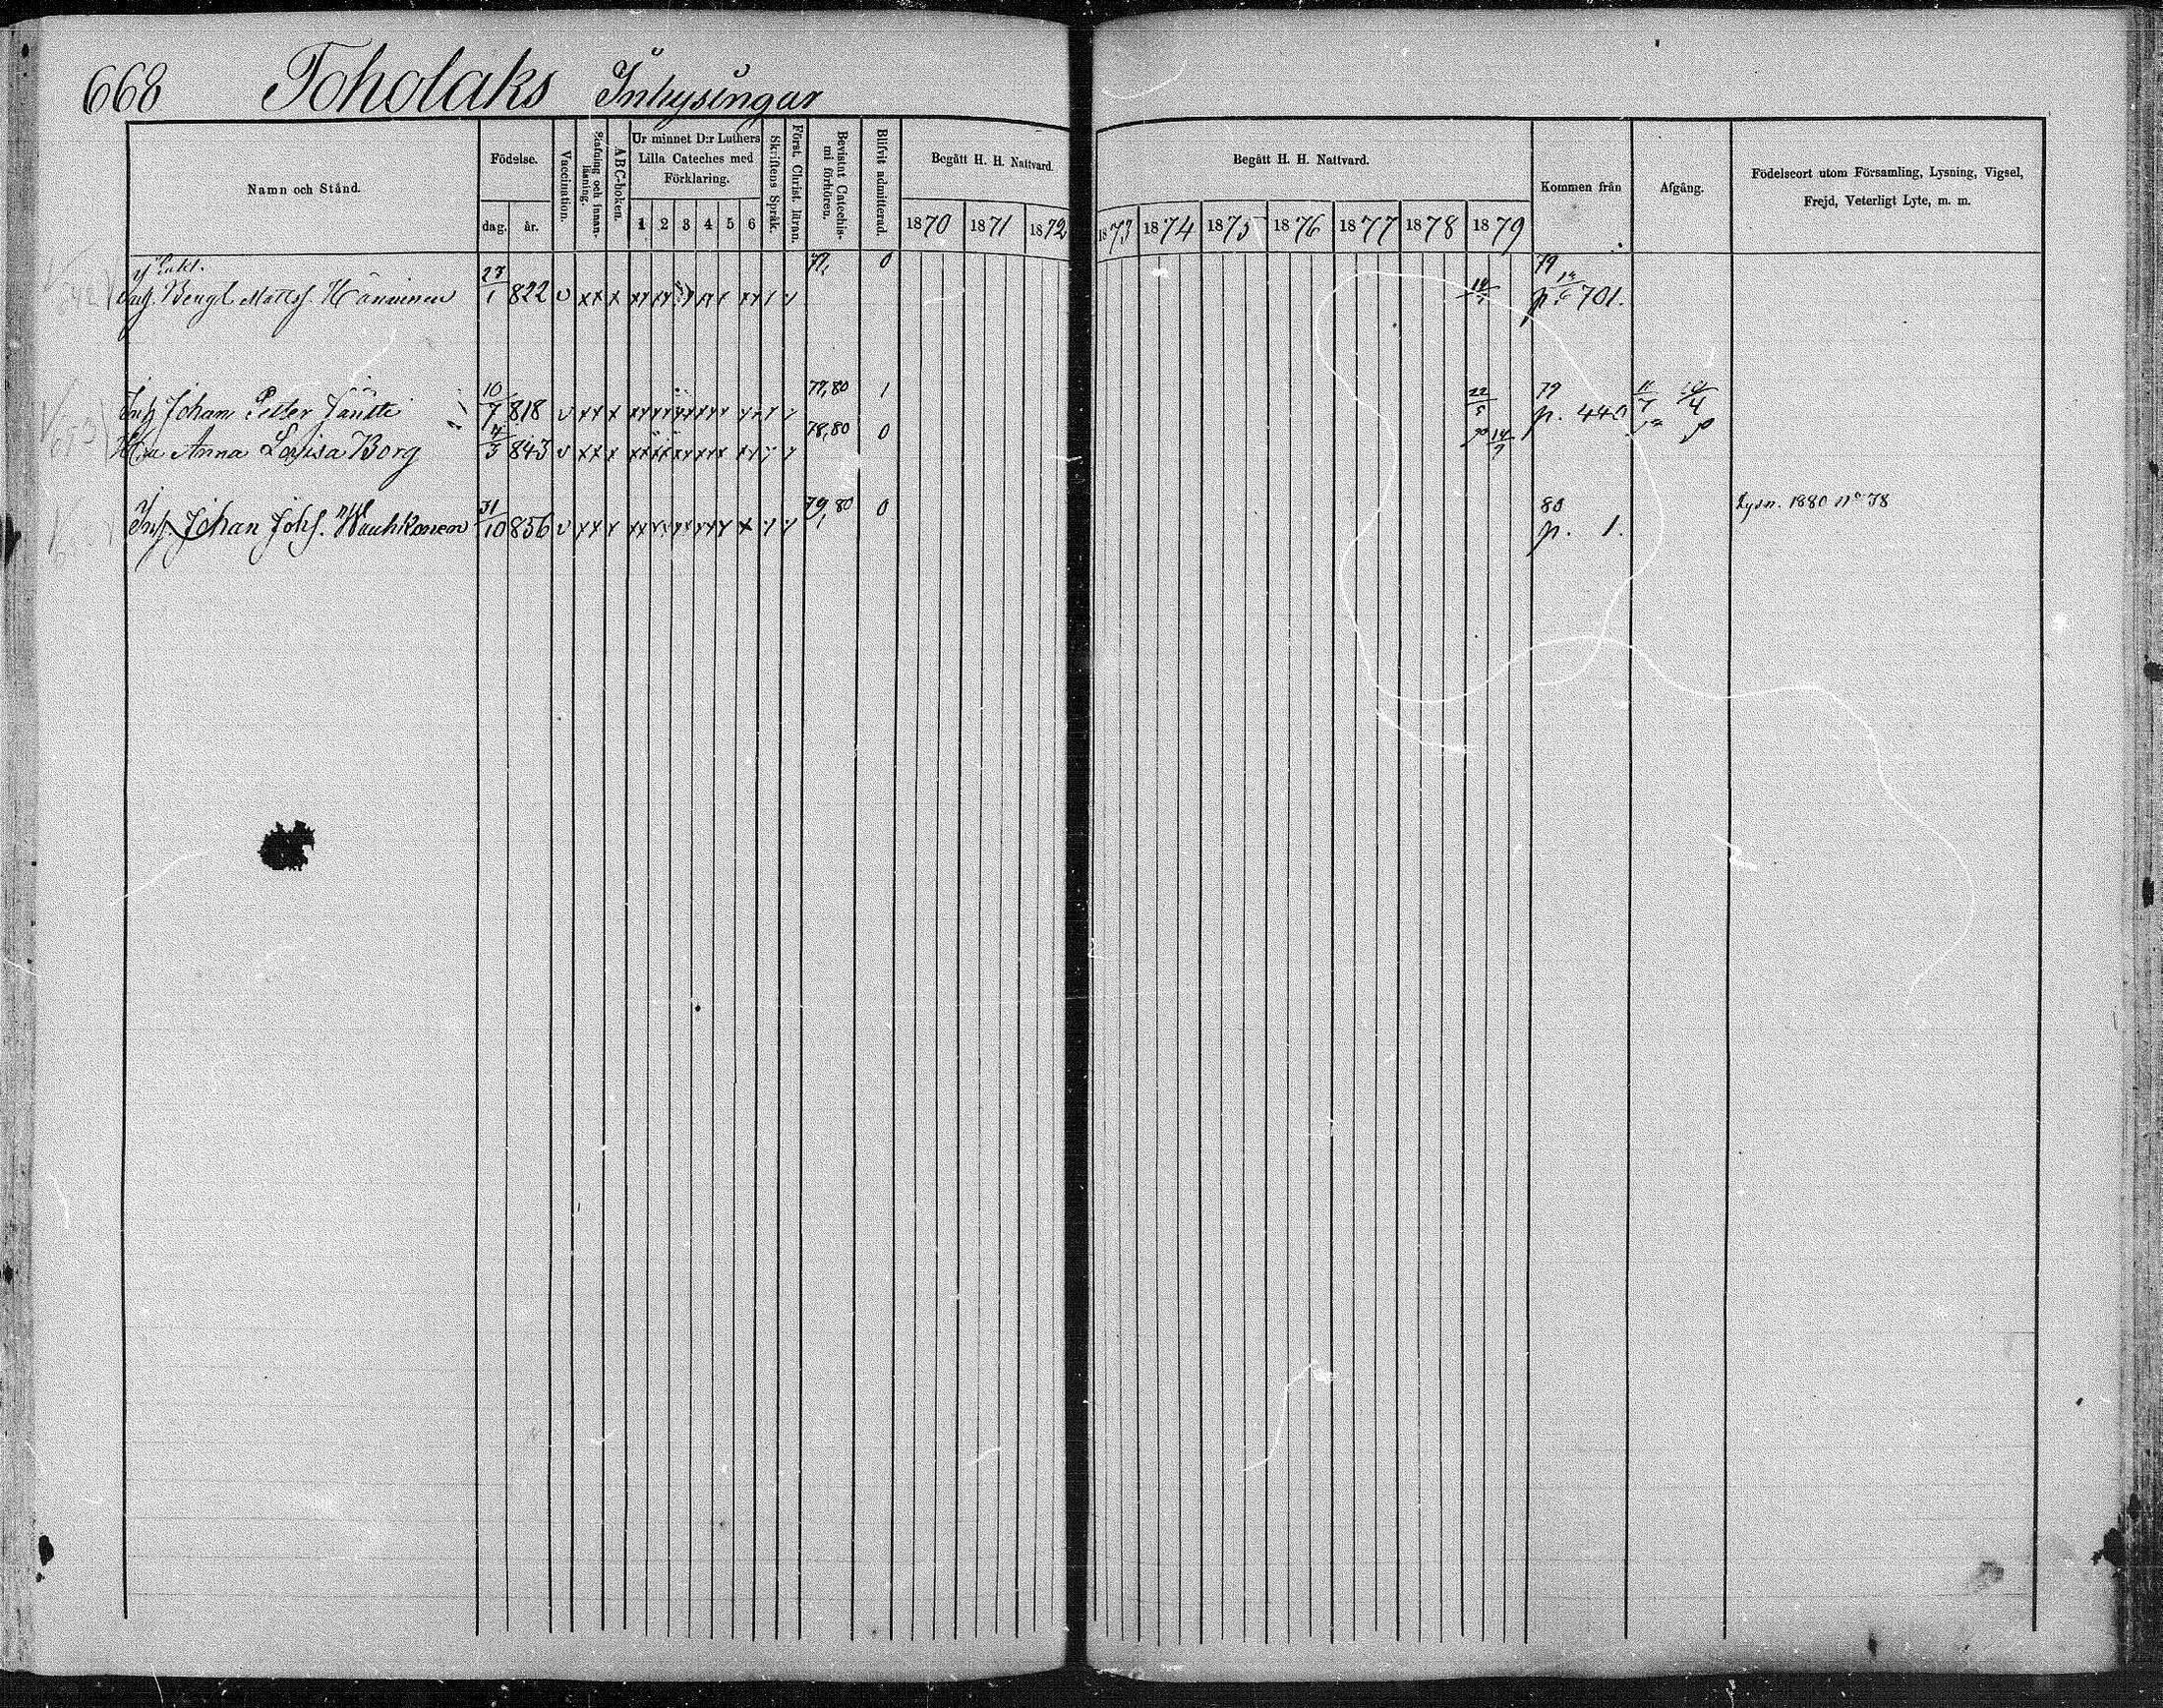 668 Toholaks Inhysingar
Namn och Stånd.
Födelse.
dag. år.
Vaccination.
Stafning och innan-läsning.
ABC-boken.
Ur minnet D:r Luthers Lilla Cateches med Förklaring.
1 2 3 4 5 6
Skriftens Språk.
Först. Christ. läran.
Bevistat Catechis-mi förhören.
Blifvit admitterad.
Begått H. H. Nattvard.
1870 1871 1872
Begått H. H. Nattvard.
1873 1874 1875 1876 1877 1878 1879
Kommen från
Afgång.
Födelseort utom Församling, Lysning, Vigsel, Frejd, Veterligt Lyte, m. m.
Inh. Bengt Matts. Hänninen 27/1 822 v xx x 77, 0 79 p. 701.
Inh. Johan Petter Jäntti 10/7 818 v xx x 77,80 1 22/5 79 p. 440
Hu Anna Lovisa Borg 4/3 843 v xx x 78,80 0
Inh. Johan Johs. Hauhkonen 31/10 856 v xx x 79,80 0 80 p. 1. Lysn. 1880 nº 78